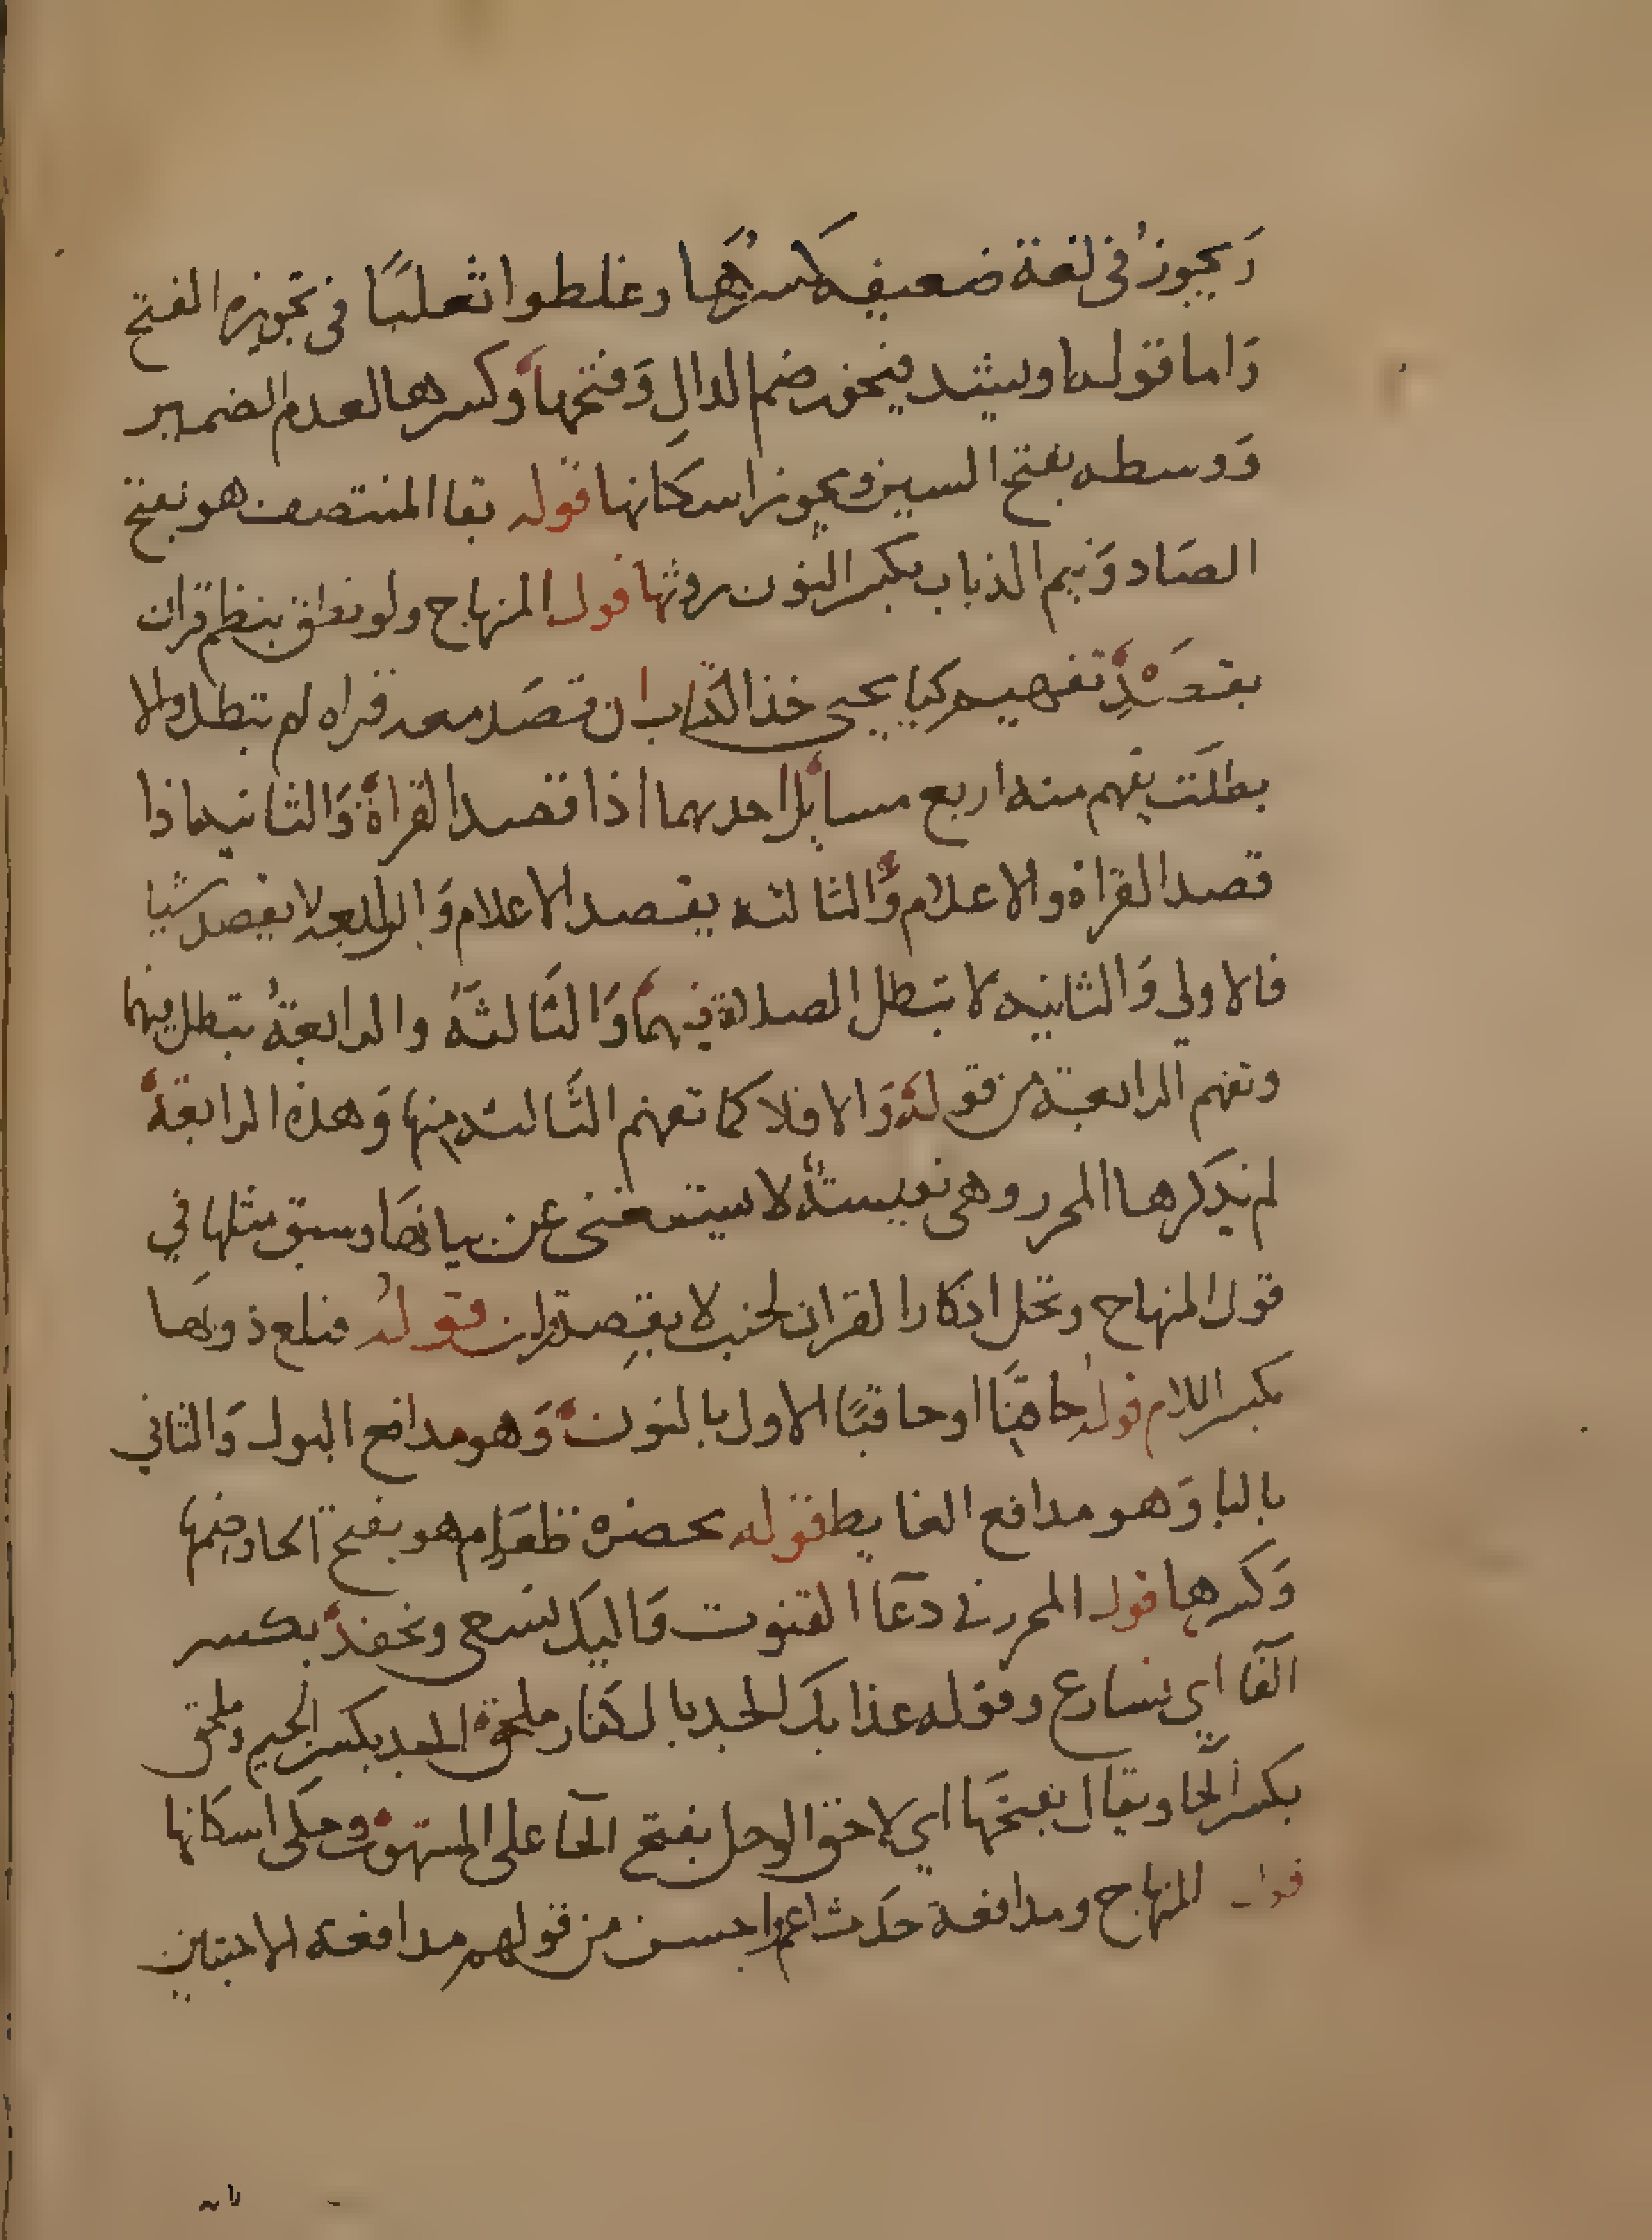 وَيجوزُ في لغة ضعيفه كسرُهَا وغلطوا ثعلبًا في تجويزه الفتح
وَاما قوله اويشد فيجوز ضم الدالِ وَفتحها وَكسرها لعدم الضمير
وَوسطه بفتح السين ويجوز اسكانها قوله بقا المنتصف هو بفتح
الصَاد وَنيم الذباب بكسر النون روثها قول المنهاج ولو نطق بنظم قران
بقصْدِ تفهيم كيا يحيى خذ الكتاب ان قصَد معه قراه لم تبطل والا
بطلَت يفهم منه اربع مسايل احديهما اذا قصد القراةَ وَالثانيه اذا
قصد القراة والاعلام وَالثالثه يقصد الاعلام وَالرابعه لا يقصد شيا
فالاولي وَالثانيه لا تبطل الصلاة فيهمَا وَالثالثَهُ والرابعةُ تبطل فيهما
وتفهم الرابعة من قوله وَالا فلا كما تفهم الثَّالثه منها وَهذه الرابعةُ
لم يذكرها المحرر وهي نفيسةٌ لا يستغنى عن بيانهَا وسبق مثلها في
قول المنهاج وتحل اذكار القران لجنب لا بقصِد قران قولُه فىلع ذوبَها
بكسر اللام قولُه حاقنًا اوحاقبًا الاول بالنون وَهو مدافع البول وَالثاني
بالبا وَهو مدافع الغايط قوله بحضرة طعَام هو بفتح الحا وضمها
وَكسرها قول المحرر في دعَا القنوت وَاليك نسعى ونحفدُ بكسر
الفا اي نسارع وقوله عذابك الجد بالكفار ملحق الجد بكسر الجيم وملحق
بكسر الحَا ويقال بفتحَها اي لاحق الوحل بفتح الحا على المشهور وحكى اسكانها
قول المنهاج ومدافعة حدَث اعم واحسن من قولهم مدافعة الاخبثين